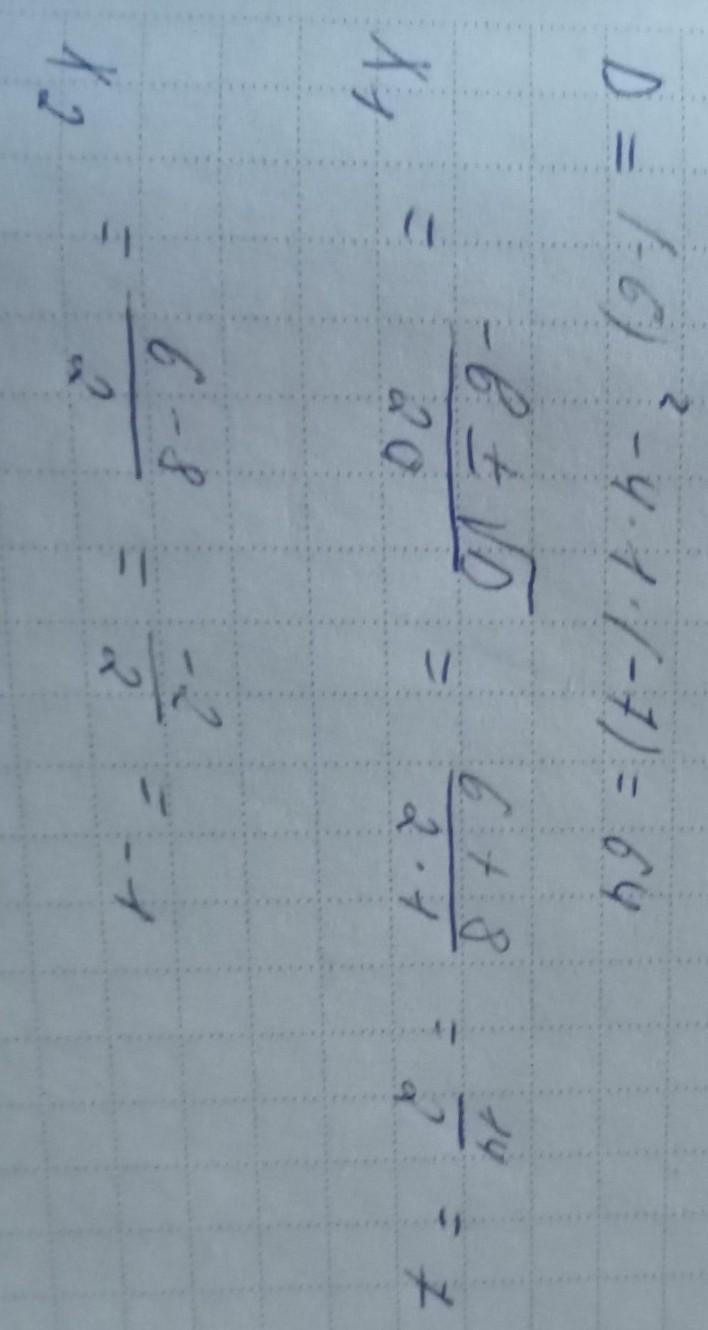 D = (-6)² - 4·1·(-7) = 64
X₁ = (-b ± √D)/(2a) = (6 + 8)/(2·1) = 14/2 = 7
X₂ = (6 - 8)/2 = -2/2 = -1